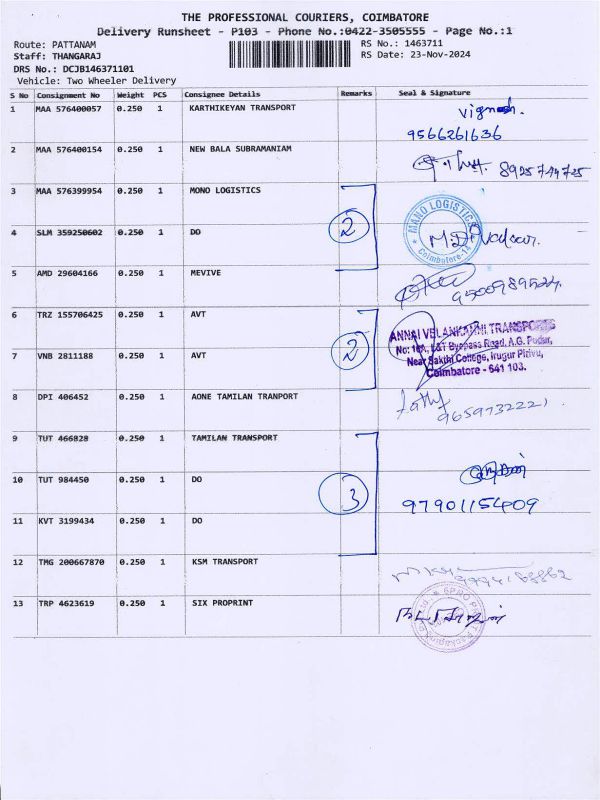 THE PROFESSIONAL COURIERS, COIMBATORE
Delivery Runsheet - P103 - Phone No.:0422-3505555 - Page No.:1
Route: PATTANAM RS No.: 1463711
Staff: THANGARAJ RS Date: 23-Nov-2024
DRS No.: DCJB146371101
Vehicle: Two Wheeler Delivery
S No Consignment No Weight PCS Consignee Details Remarks Seal & Signature
1 MAA 576400057 0.250 1 KARTHIKEYAN TRANSPORT
9566261636
2 MAA 576400154 0.250 1 NEW BALA SUBRAMANIAM 8925744725
3 MAA 576399954 0.250 1 MONO LOGISTICS
MANO LOGISTICS
2
4 SLM 359250602 0.250 1 DO
Coimbatore-14
5 AMD 29604166 0.250 1 MEVIVE
6 TRZ 155706425 0.250 1 AVT
ANNAI VELANKANNI TRANSPORTS
No: L&T Byepass Road, A.G. Pudur,
2
7 VNB 2811188 0.250 1 AVT
Near Sakthi College, Irugur Pirivu,
Coimbatore - 641 103.
8 DPI 406452 0.250 1 AONE TAMILAN TRANPORT
9659732221
9 TUT 466828 0.250 1 TAMILAN TRANSPORT
10 TUT 984450 0.250 1 DO
3
9790115409
11 KVT 3199434 0.250 1 DO
12 TMG 200667870 0.250 1 KSM TRANSPORT
13 TRP 4623619 0.250 1 SIX PROPRINT